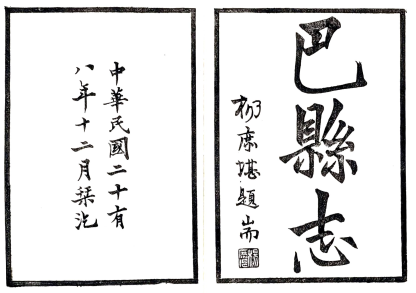 巴縣志
楊庶堪題耑
中華民國二十有
八年十二月栞訖